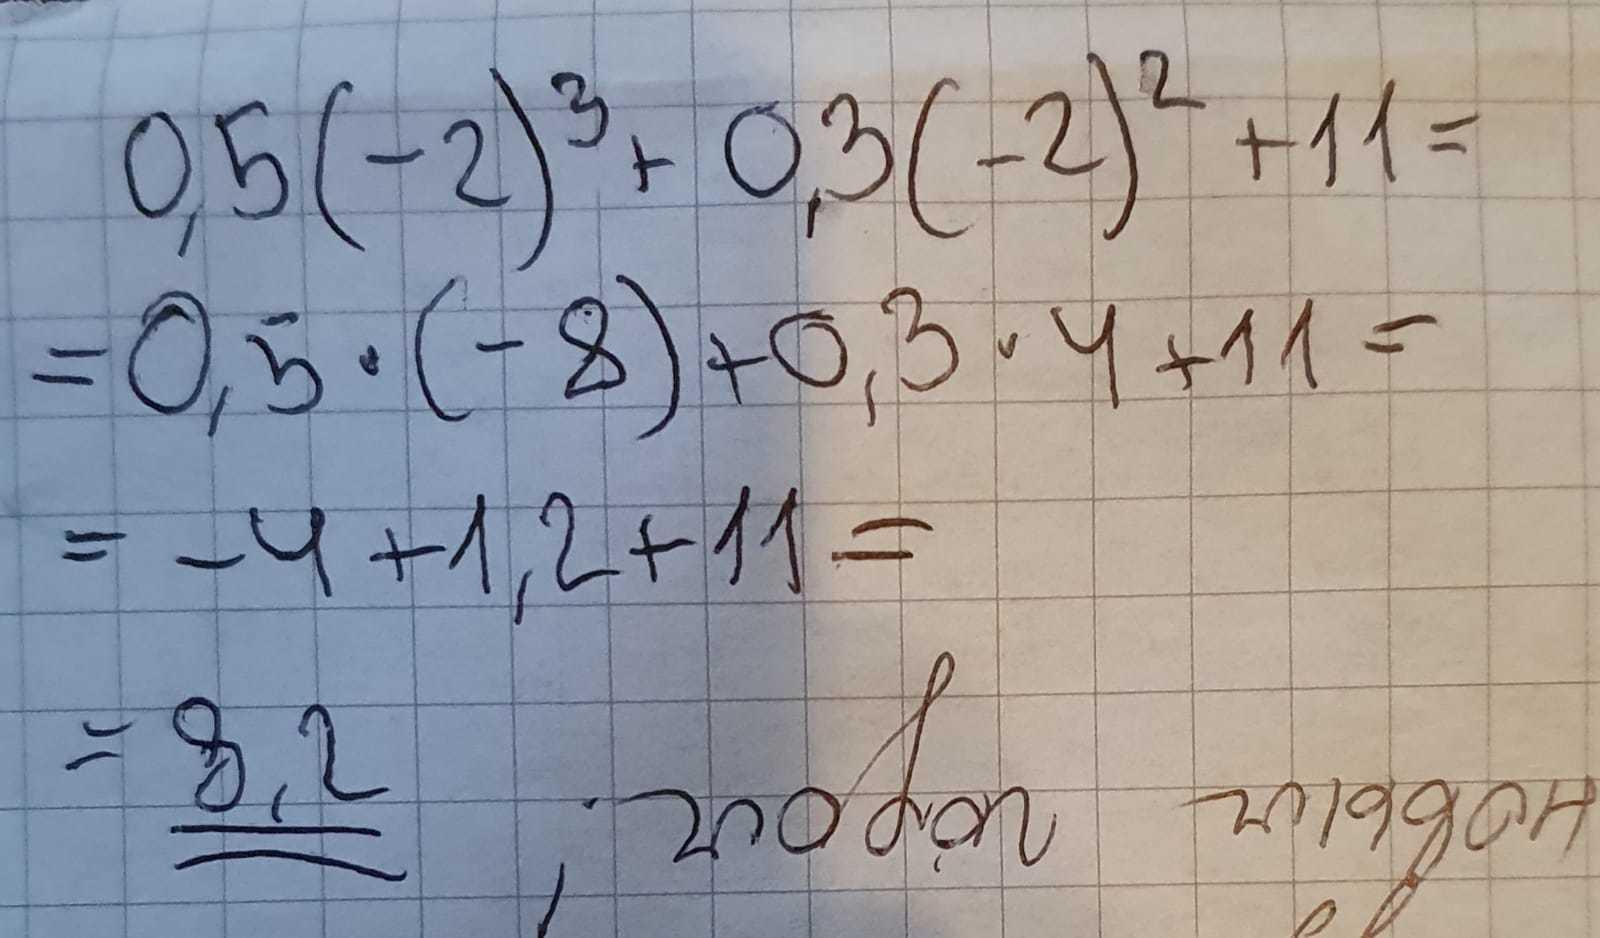 0,5(-2)³+ 0,3(-2)² +11=
=0,5·(-8)+0,3·4+11=
= -4+1,2+11=
= 8,2